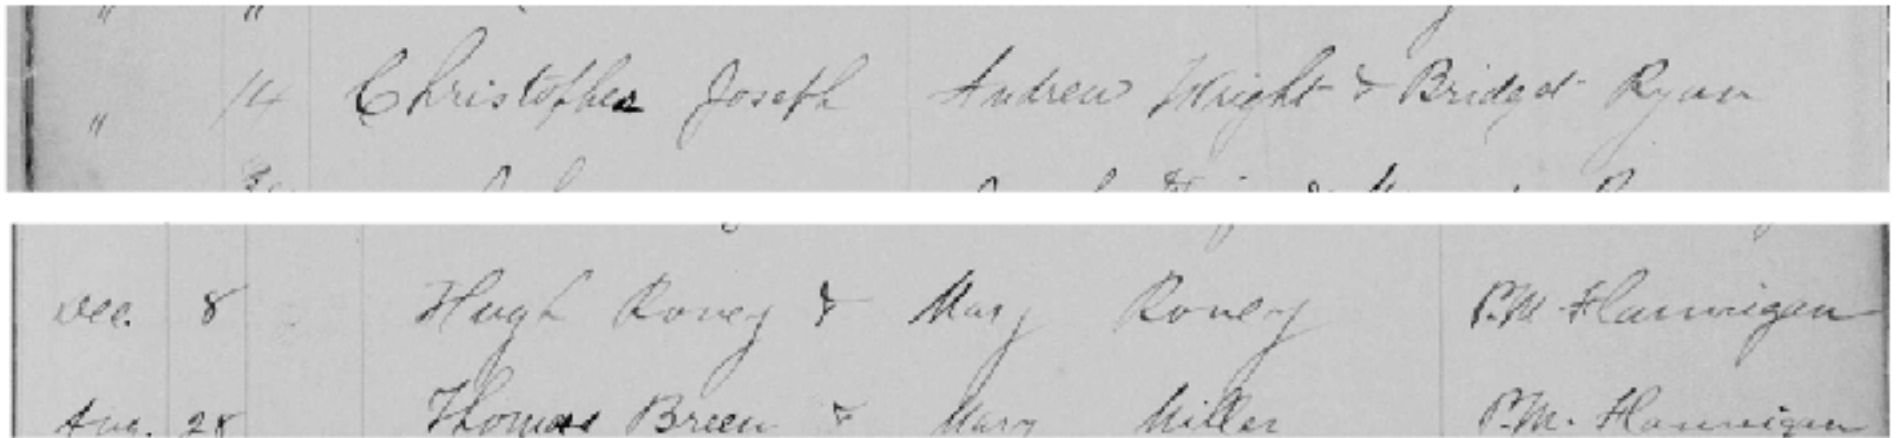 " "
" 14 Christopher Joseph Andrew Wright & Bridget Ryan
Dec. 8 Hugh Roney & Mary Roney P.M. Flannigan
Aug. 28 Thomas Breen & Mary Miller P.M. Flannigan